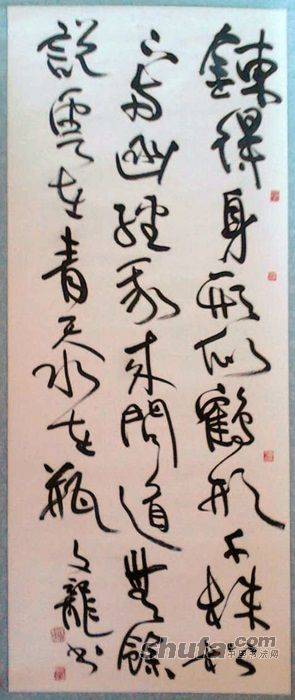 鍊得身形似鶴形千株松
下兩函經我來問道無餘
說雲在青天水在瓶 文龍書
shufa.com
中国书法网